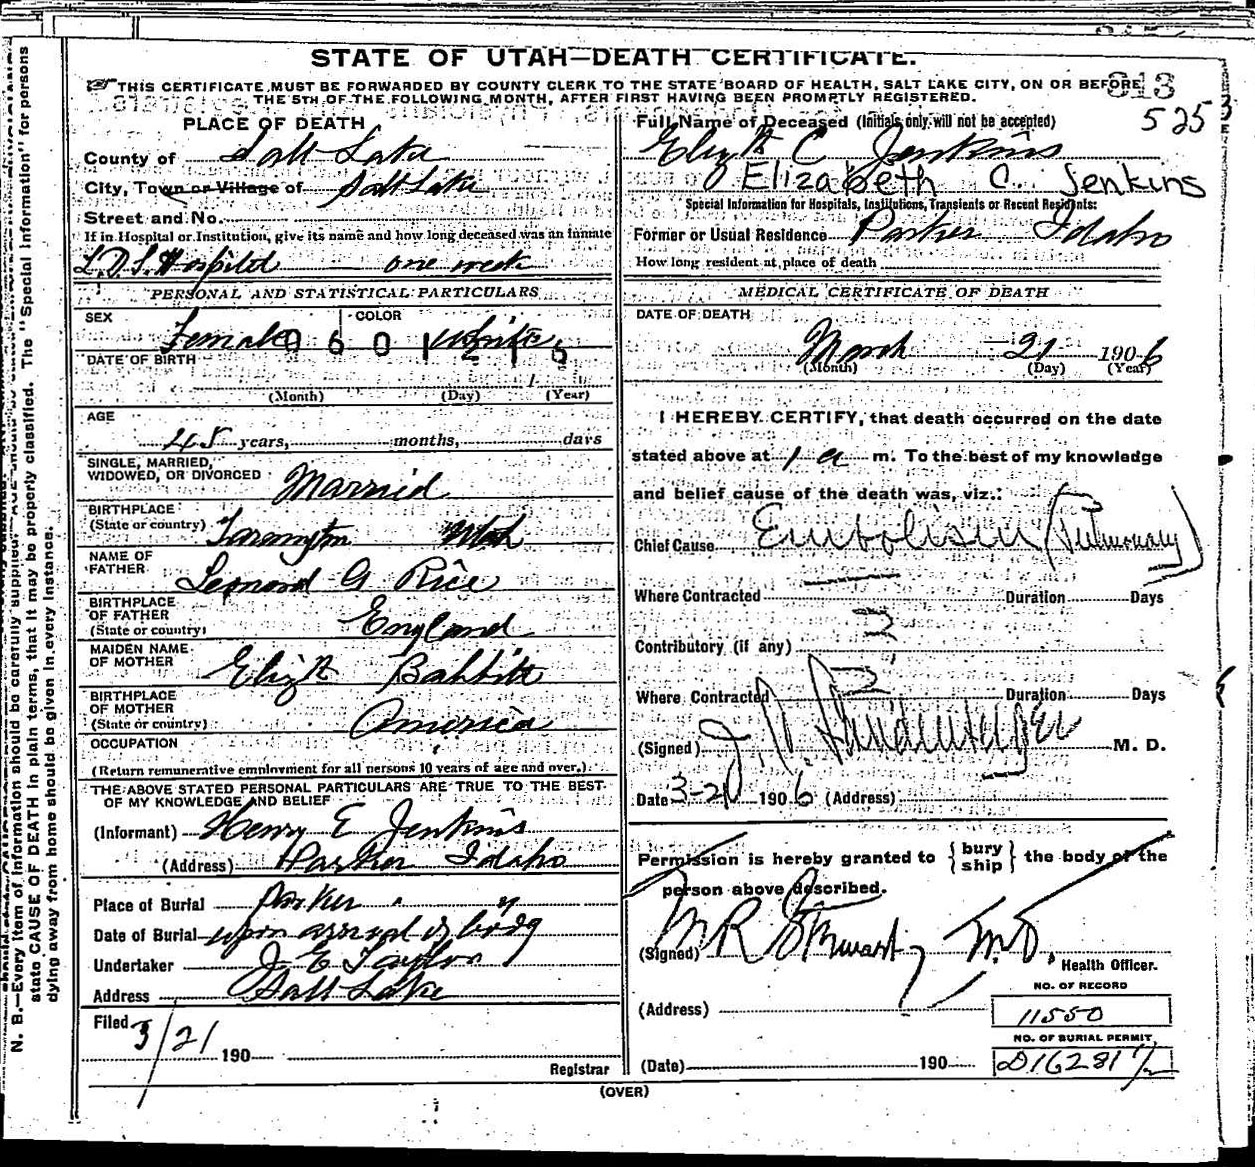 STATE OF UTAH—DEATH CERTIFICATE.
THIS CERTIFICATE MUST BE FORWARDED BY COUNTY CLERK TO THE STATE BOARD OF HEALTH, SALT LAKE CITY, ON OR BEFORE
THE 5TH OF THE FOLLOWING MONTH, AFTER FIRST HAVING BEEN PROMPTLY REGISTERED.
813
525
PLACE OF DEATH
County of Salt Lake
City, Town or Village of Salt Lake
Street and No.
If in Hospital or Institution, give its name and how long deceased was an inmate
L.D.S. Hospital one week
PERSONAL AND STATISTICAL PARTICULARS
SEX Female COLOR White
0601 216
DATE OF BIRTH
(Month) (Day) (Year)
AGE
45 years, months, days
SINGLE, MARRIED,
WIDOWED, OR DIVORCED Married
BIRTHPLACE
(State or country) Farmington Utah
NAME OF
FATHER Leonard G Rice
BIRTHPLACE
OF FATHER
(State or country) England
MAIDEN NAME
OF MOTHER Elizth Babbitt
BIRTHPLACE
OF MOTHER
(State or country) America
OCCUPATION
(Return remunerative employment for all persons 10 years of age and over.)
THE ABOVE STATED PERSONAL PARTICULARS ARE TRUE TO THE BEST
OF MY KNOWLEDGE AND BELIEF
(Informant) Henry E Jenkins
(Address) Parker Idaho
Place of Burial Parker "
Date of Burial upon arrival of body
Undertaker J E Taylor
Address Salt Lake
Filed 3/21 190
Registrar
Full Name of Deceased (Initials only will not be accepted)
Elizth C Jenkins
Elizabeth C. Jenkins
Special Information for Hospitals, Institutions, Transients or Recent Residents:
Former or Usual Residence Parker Idaho
How long resident at place of death
MEDICAL CERTIFICATE OF DEATH
DATE OF DEATH
March 21 1906
(Month) (Day) (Year)
I HEREBY CERTIFY, that death occurred on the date
stated above at 1 a m. To the best of my knowledge
and belief cause of the death was, viz.:
Chief Cause Embolism (Pulmonary)
Where Contracted Duration Days
Contributory (if any) ?
Where Contracted ? Duration Days
(Signed) M. D.
Date 3-21 1906 (Address)
Permission is hereby granted to { bury ship } the body of the
person above described.
(Signed) M R Stewart, M.D. Health Officer.
(Address)
NO. OF RECORD
11550
NO. OF BURIAL PERMIT
D16281 1/2
(Date) 190
(OVER)
N. B.—Every item of information should be carefully supplied.
state CAUSE OF DEATH in plain terms, that it may be properly classified. The "Special Information" for persons
dying away from home should be given in every instance.